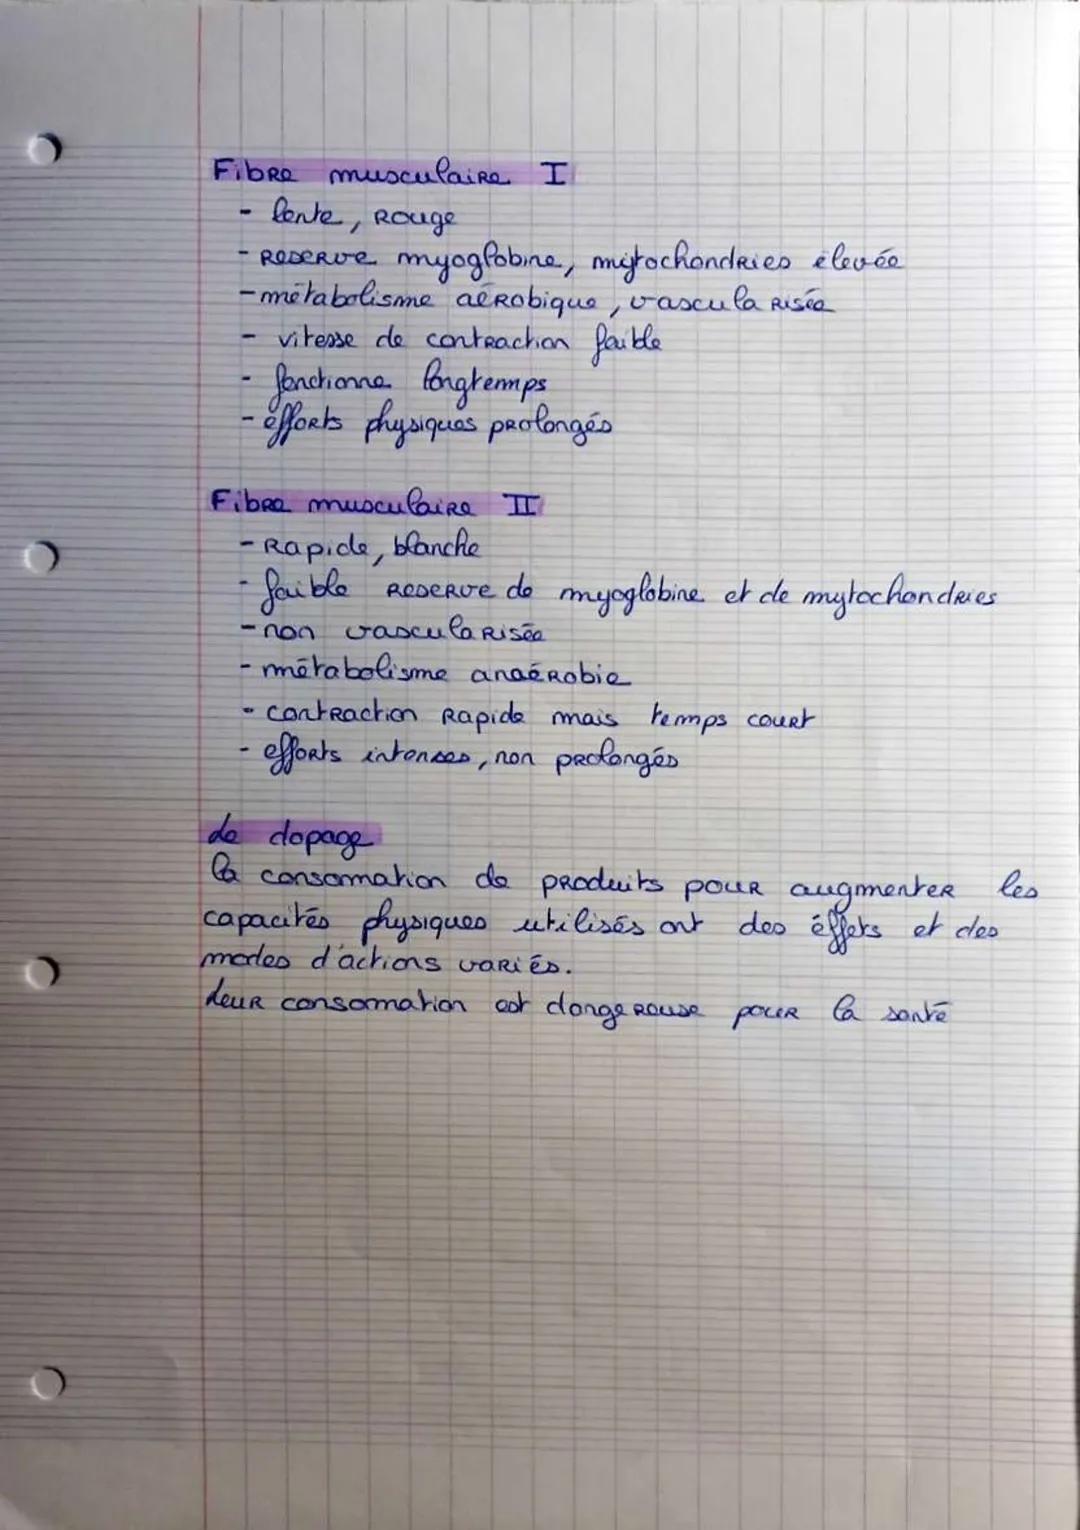 Fibre musculaire I
- lente, rouge
- reserve myoglobine, mytochondries élevée
- métabolisme aérobique, vascularisée
- vitesse de contraction faible
- fonctionne longtemps
- éfforts physiques prolongés
Fibre musculaire II
- Rapide, blanche
- faible reserve de myoglobine et de mytochondries
- non vascularisée
- métabolisme anaérobie
- contraction rapide mais temps court
- efforts intenses, non prolongés
Le dopage
la consomation de produits pour augmenter les
capacités physiques utilisés ont des éffets et des
modes d'actions variés.
Leur consomation est dangereuse pour la santé